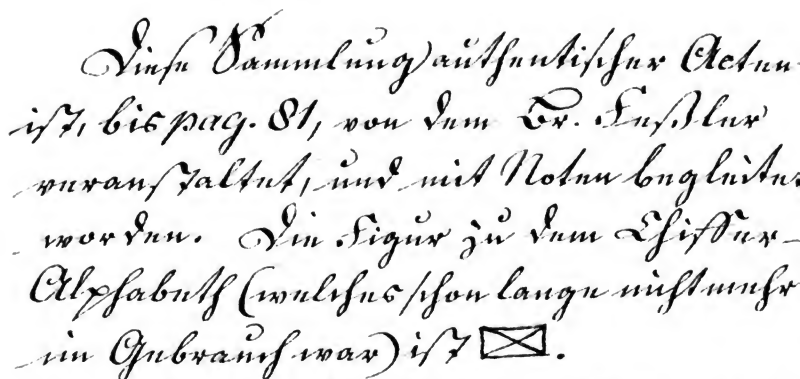 Diese Sammlung authentischer Acten
ist, bis pag. 81, von dem Br. Feßler
veranstaltet, und mit Noten begleitet
worden. Die Figur zu dem Chiffer-
Alphabeth (welches schon lange nicht mehr
im Gebrauch war) ist .